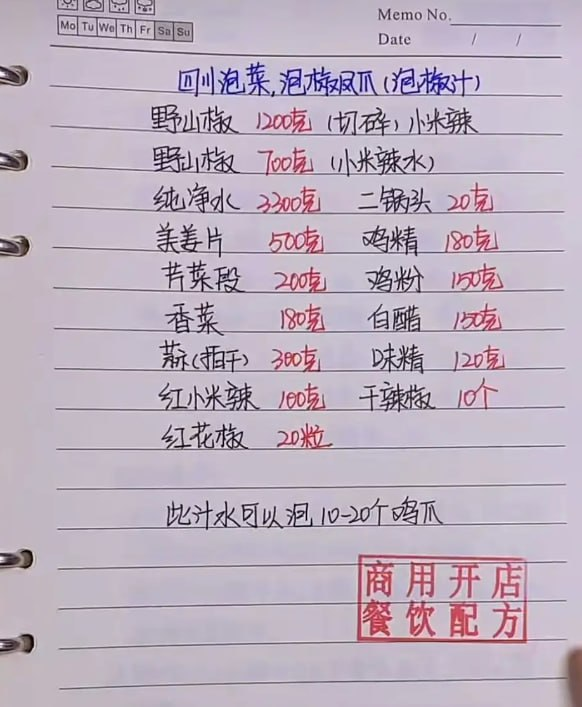 Memo No.
Mo Tu We Th Fr Sa Su
Date / /
四川泡菜,泡椒凤爪(泡椒汁)
野山椒 1200克 (切碎) 小米辣
野山椒 700克 (小米辣水)
纯净水 3300克 二锅头 20克
姜片 500克 鸡精 180克
芹菜段 200克 鸡粉 150克
香菜 180克 白醋 150克
蒜(拍干) 300克 味精 120克
红小米辣 100克 干辣椒 10个
红花椒 20粒
此汁水可以泡10-20个鸡爪
商用开店
餐饮配方